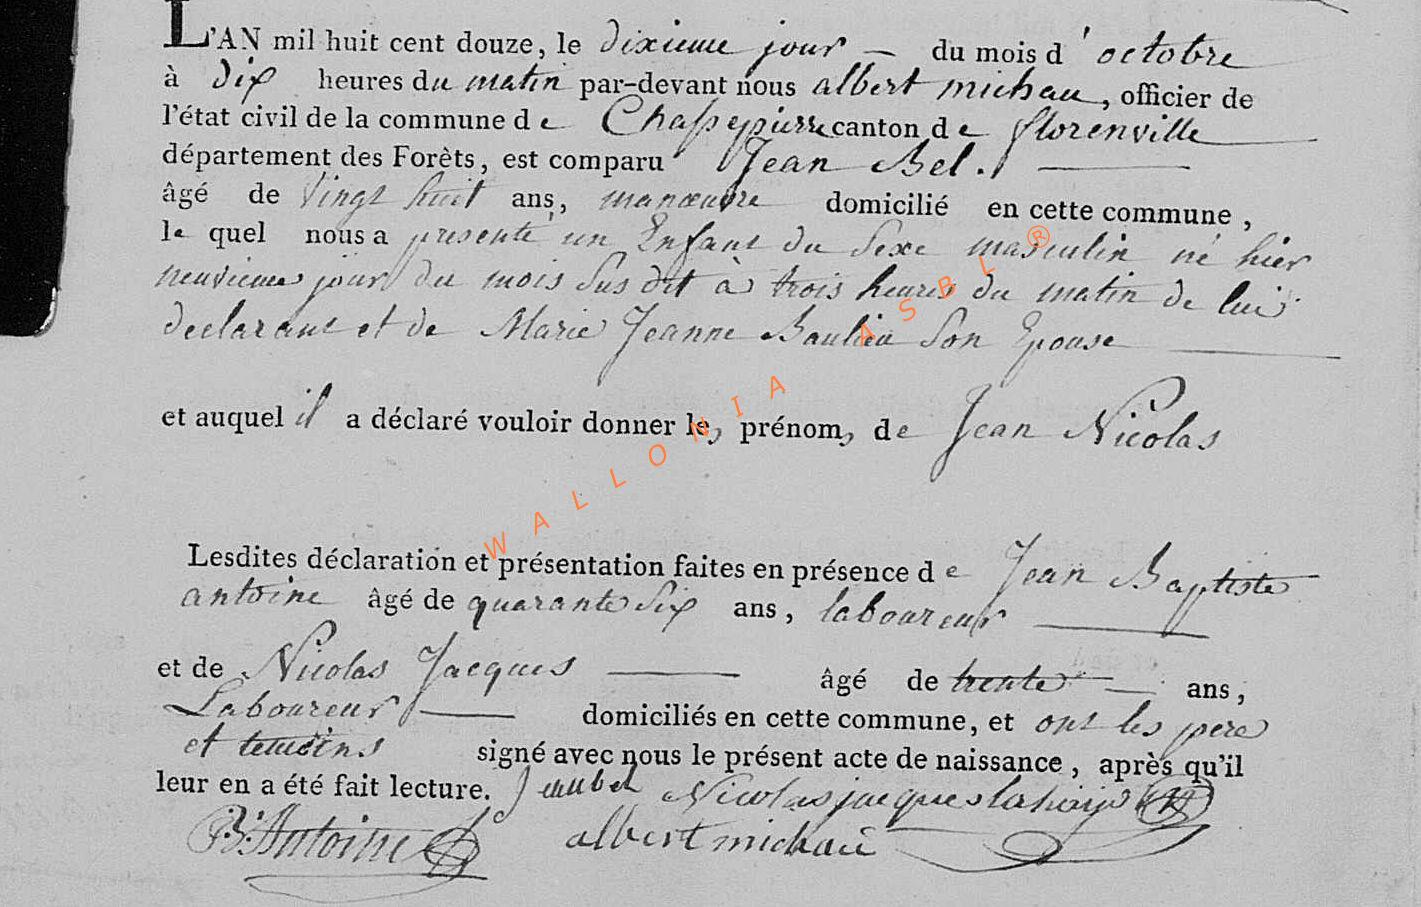 L'AN mil huit cent douze, le dixieme jour — du mois d'octobre
à dix heures du matin par-devant nous albert michau, officier de
l'état civil de la commune de Chassepierre canton de florenville
département des Forêts, est comparu Jean Bel.
âgé de vingt huit ans, manœuvre domicilié en cette commune,
le quel nous a presenté un Enfant du Sexe masculin né hier
neuvieme jour du mois Sus dit à trois heures du matin de lui
declarant et de Marie Jeanne Baulieu Son Epouse
et auquel il a déclaré vouloir donner les prénoms de Jean Nicolas
Lesdites déclaration et présentation faites en présence de Jean Baptiste
antoine âgé de quarante Six ans, laboureur
et de Nicolas Jacques âgé de trente ans,
Laboureur domiciliés en cette commune, et ont les pere
et temoins signé avec nous le présent acte de naissance, après qu'il
leur en a été fait lecture. Jean bel Nicolas jacques
JB: Antoine albert michau
WALLONIA ASBL ®